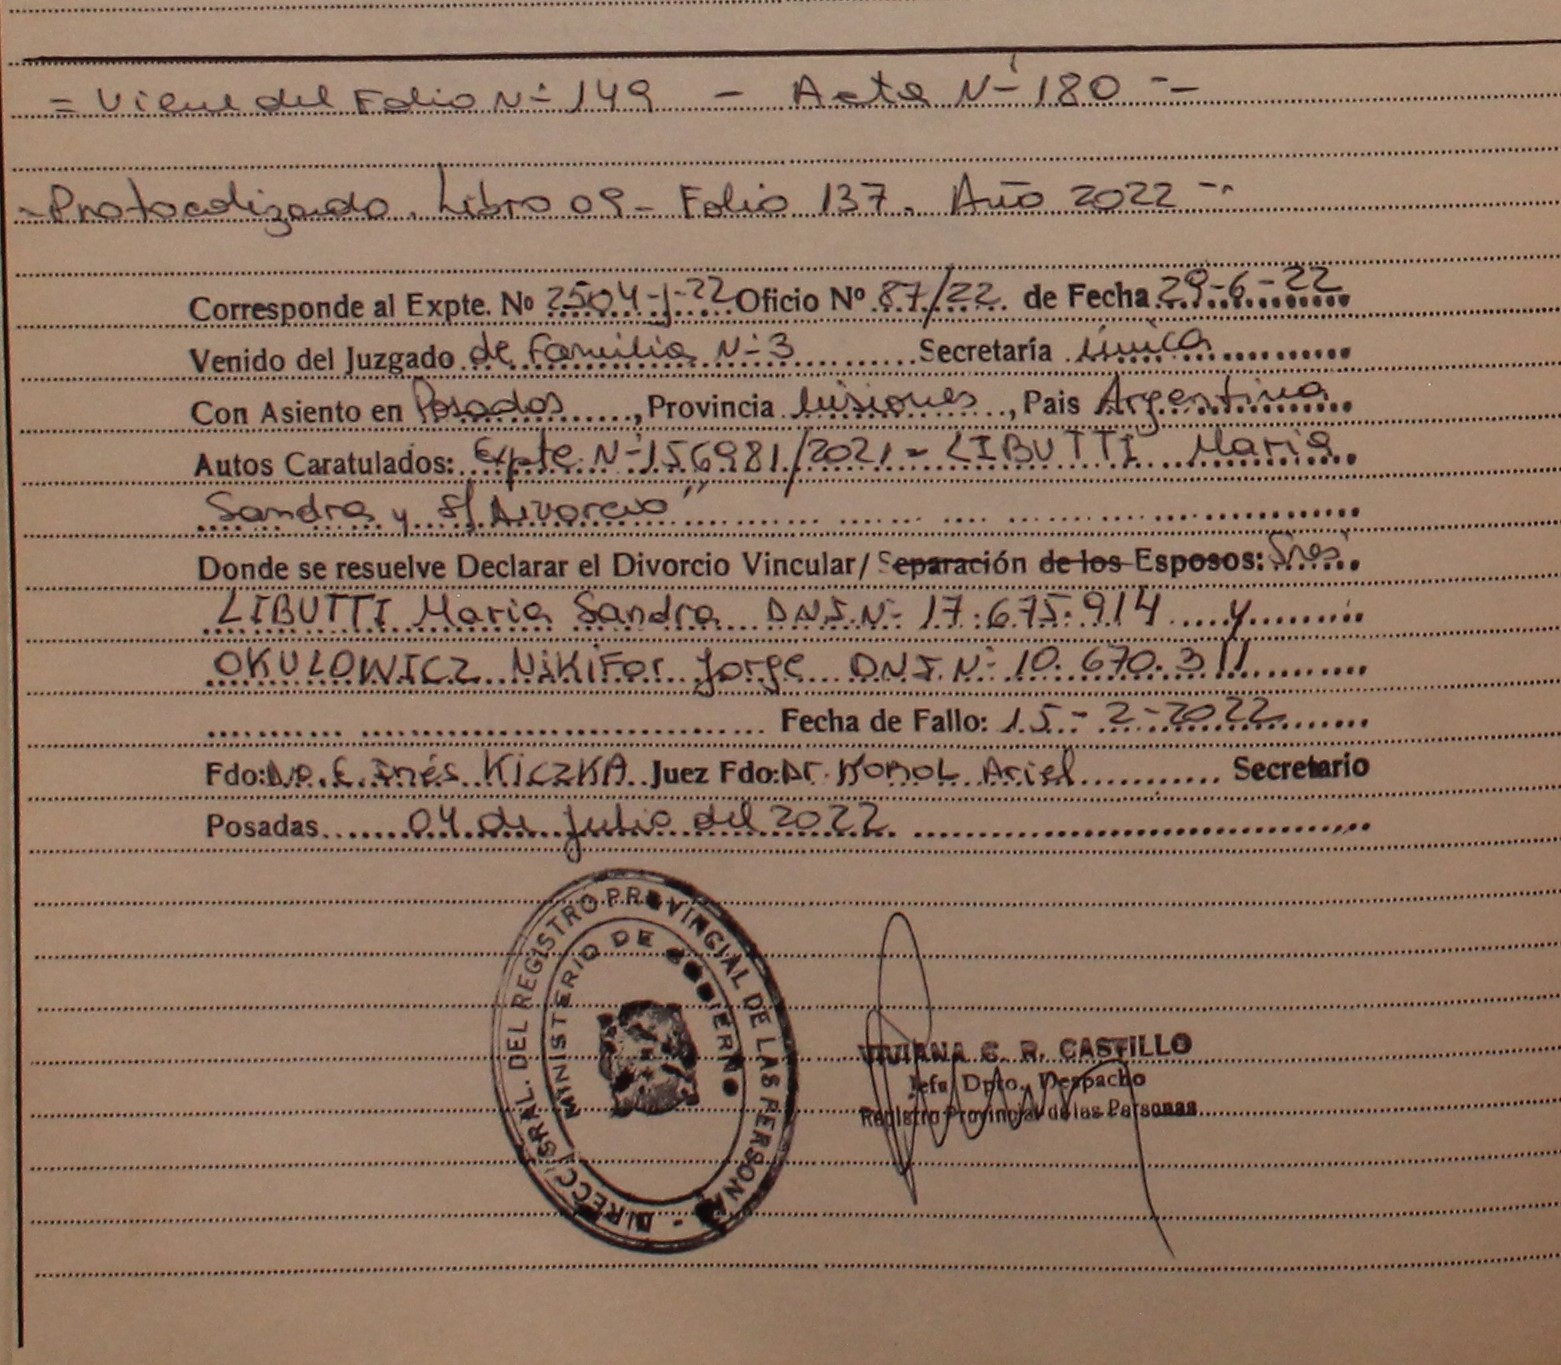 = Viene del Folio Nº 149 - Acta Nº 180 --
- Protocolizado. Libro 09 - Folio 137. Año 2022 --
Corresponde al Expte. Nº 2504-J-22 Oficio Nº 87/22 de Fecha 29-6-22
Venido del Juzgado de Familia Nº 3 Secretaría Única
Con Asiento en Posadas, Provincia Misiones, Pais Argentina
Autos Caratulados: Expte Nº 156981/2021 - LIBUTTI Maria
Sandra y s/ Divorcio"
Donde se resuelve Declarar el Divorcio Vincular/ Separación de los Esposos: Sres.
LIBUTTI Maria Sandra D.N.I. Nº 17.675.914 y
OKULOWICZ Nikifor Jorge D.N.I. Nº 10.670.311
Fecha de Fallo: 15-2-2022
Fdo: Dra. E. Inés KICZKA Juez Fdo: Dr. Ariel Secretario
Posadas 04 de Julio del 2022
DIRECC. GRAL. DEL REGISTRO PROVINCIAL DE LAS PERSONAS -
MINISTERIO DE GOBIERNO
VIVIANA C. R. CASTILLO
Jefa Dpto. Despacho
Registro Provincial de las Personas